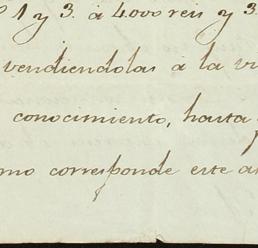 1 y 3. á 4000 reis y 3.
vendiendolas á la
conocimiento, hasta
mo corresponde este